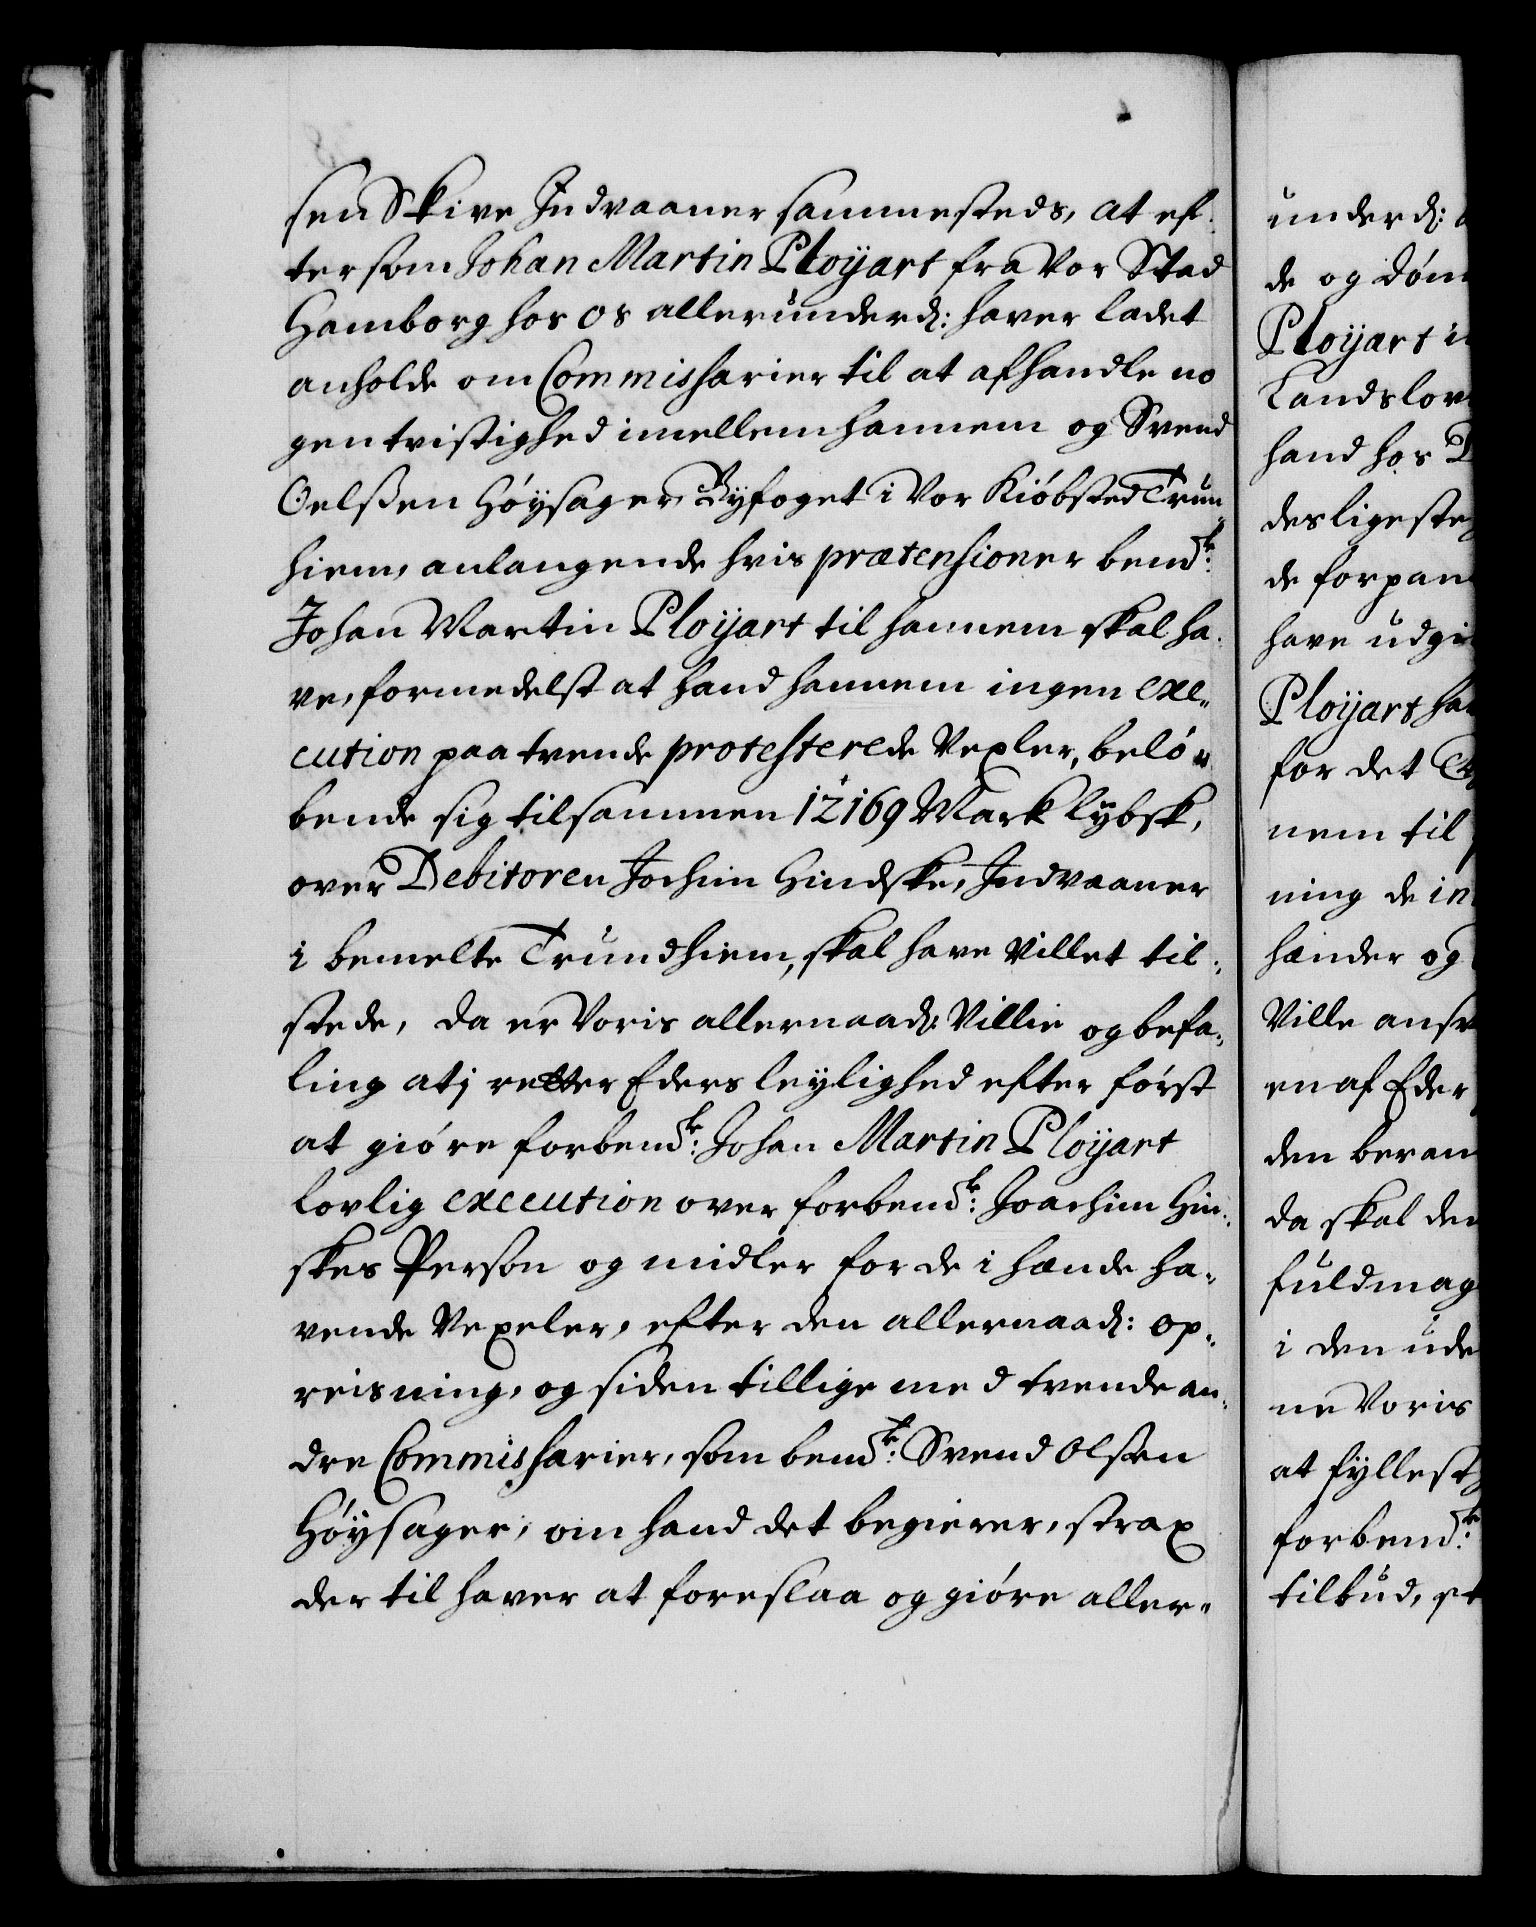 sen Skive Indvaaner sammesteds, at ef-
tersom Johan Martin Ploÿart fra Vor Stad
Hamborg hos os allerunderd: haver ladet
anholde om Commissarier til at afhandle no
gen tvistighed imellem hannem og Svend
Oelssen Höysager, Byfoget i Vor Kiöbsted Trun
hiem, anlangende hvis prætensioner bemdte:
Johan Martin Ploÿart til hannem skal ha-
ve, formedelst at hand hannem ingen exe-
cution paa tvende protesterede Vexler, belö-
bende sig tilsammen 12169 Mark lybsk,
over Debitoren Jochim Hindske, Indvaaner
i bemelte Trundhiem, skal have Villet til-
stede, da er Voris allernaad: Villie og befa-
ling at j retter Eders leylighed efter först
at giöre forbemdte: Johan Martin Ploÿart
lovlig execution over forbemdte: Joachim Hin-
skes Person og midler for de i hænde ha-
vende Vexeler, efter den allernaad: op-
reisning, og siden tillige med tvende an-
dre Commissarier, som bemdte: Svend Olssen
Höysager, om hand det begierer, strax
der til haver at foreslaa og giöre aller-
underd:
de og döm
Ploÿart
Landslov
hand hos
desligeste
de forpan
have udgi
Ploÿart ha
for det
nem til
ning de in
hænder og
Ville ansv
en af Eder
den beram
da skal den
fuldmag
i den ude
ne Voris
at fyllest
forbemdte:
tilbud, st